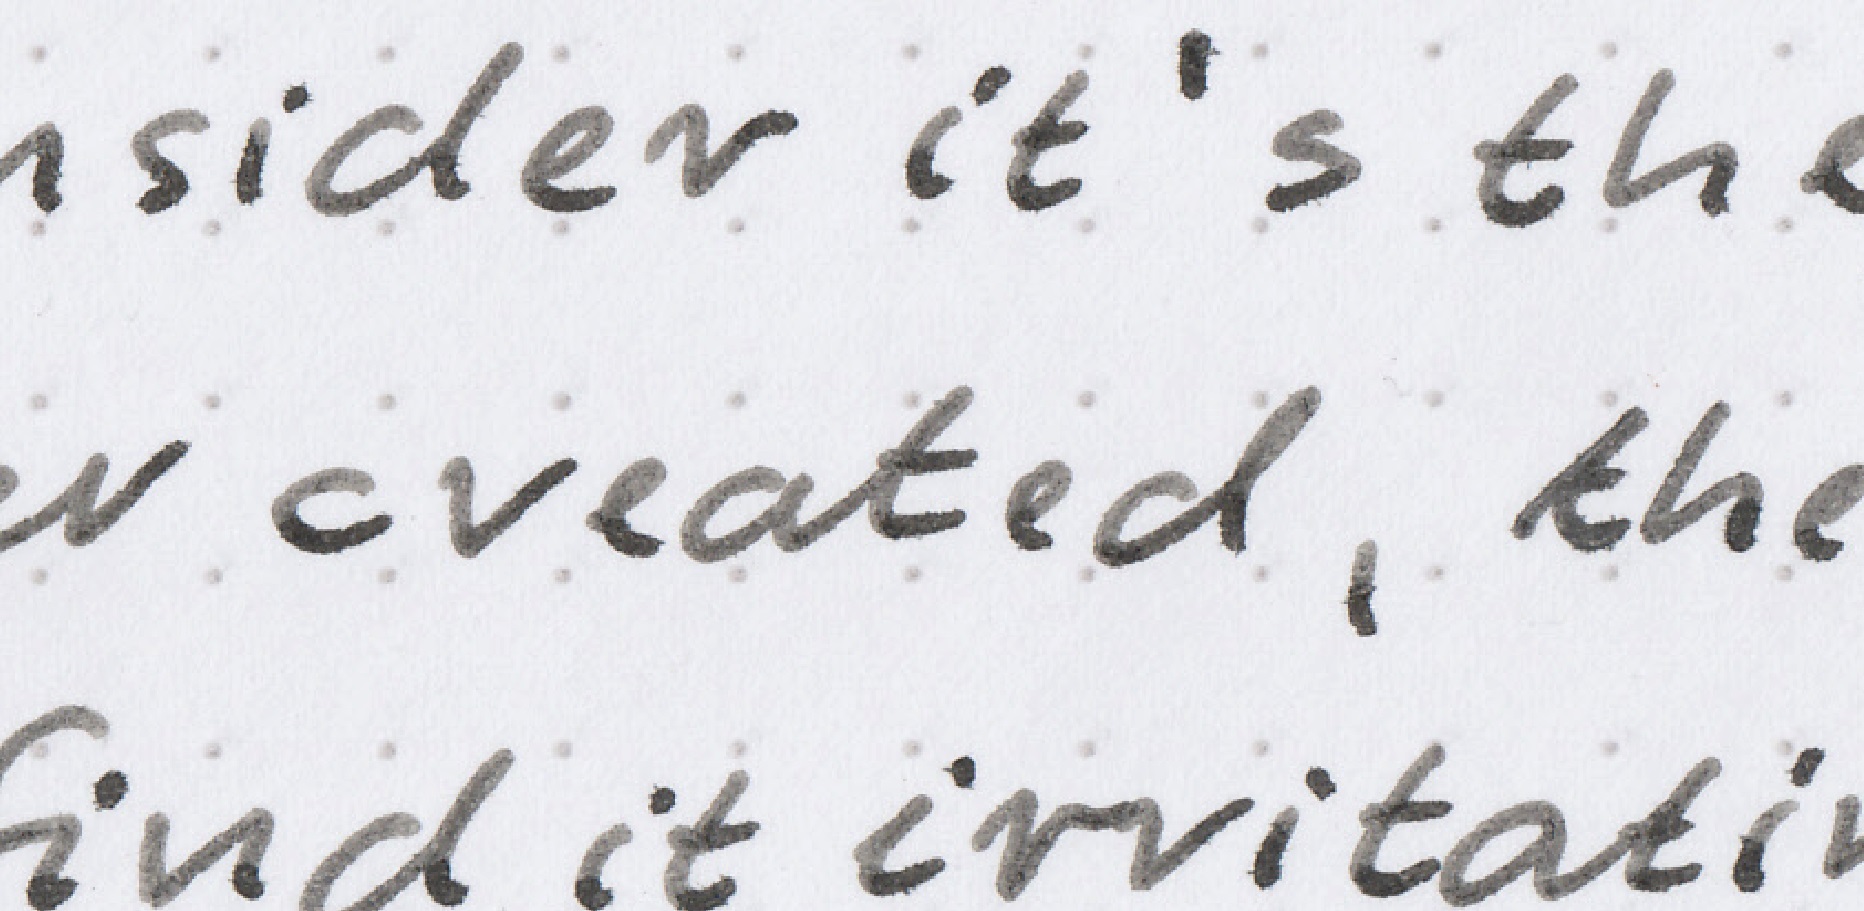 nsider it's the
er created, the
find it irritatin